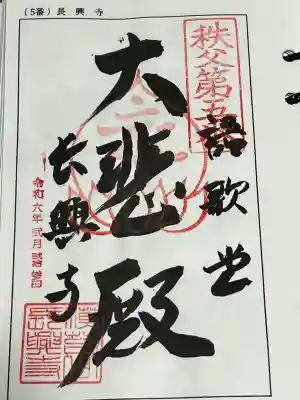 (5番) 長興寺
秩父第五番
語歌堂
大悲殿
長興寺
令和六年弐月弐拾参日
長興寺